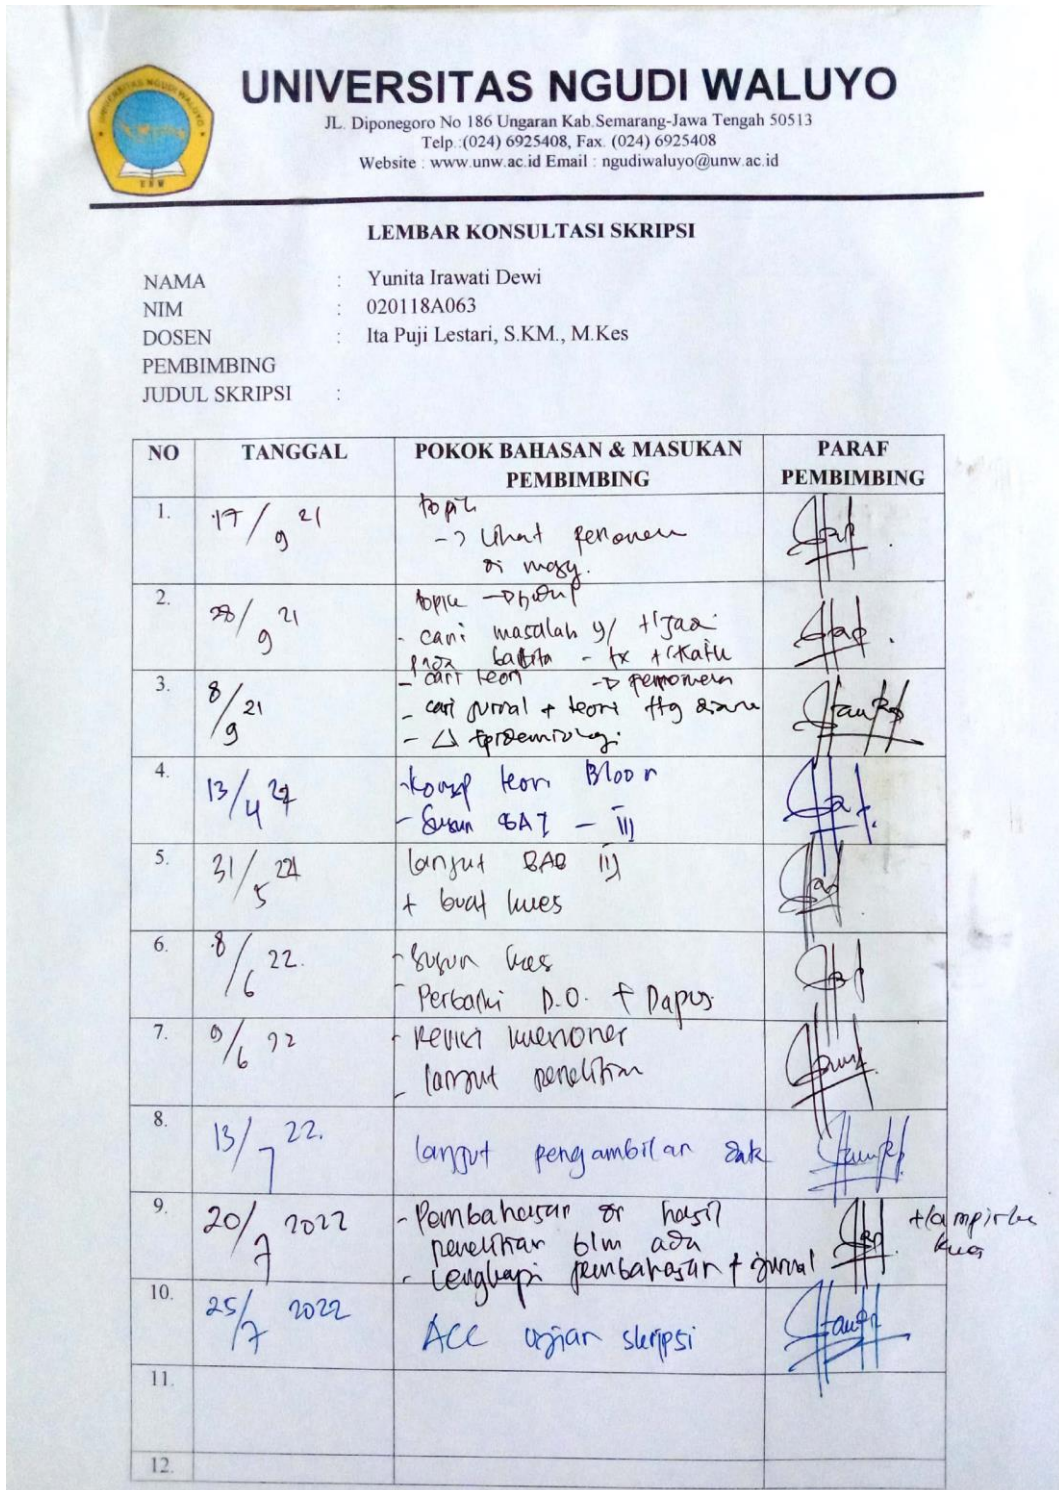 UNIVERSITAS NGUDI WALUYO
JL. Diponegoro No 186 Ungaran Kab.Semarang-Jawa Tengah 50513
Telp.:(024) 6925408, Fax. (024) 6925408
Website : www.unw.ac.id Email : ngudiwaluyo@unw.ac.id
LEMBAR KONSULTASI SKRIPSI
NAMA : Yunita Irawati Dewi
NIM : 020118A063
DOSEN : Ita Puji Lestari, S.KM., M.Kes
PEMBIMBING
JUDUL SKRIPSI :
NO TANGGAL POKOK BAHASAN & MASUKAN PARAF
PEMBIMBING PEMBIMBING
1. 17/9 21 topik
-> lihat
di masy.
2. 28/9 21 topik
- cari masalah
balita
3. 8/9 21 - cari teori
- cari jurnal + teori ttg
- Δ Epidemiologi
4. 13/4 - Konsep teori Bloom
- Susun
5. 31/5 lanjut BAB III
+ buat kues
6. 8/6 22. - Susun kues
- Perbaiki D.O. + Dapus
7. 9/6 22 - Revisi kuesioner
- lanjut penelitian
8. 13/7 22. lanjut pengambilan
9. 20/7 2022 - Pembahasan hasil + lampirkan
penelitian blm ada kues
- Lengkapi pembahasan + jurnal
10. 25/7 2022 ACC ujian skripsi
11.
12.